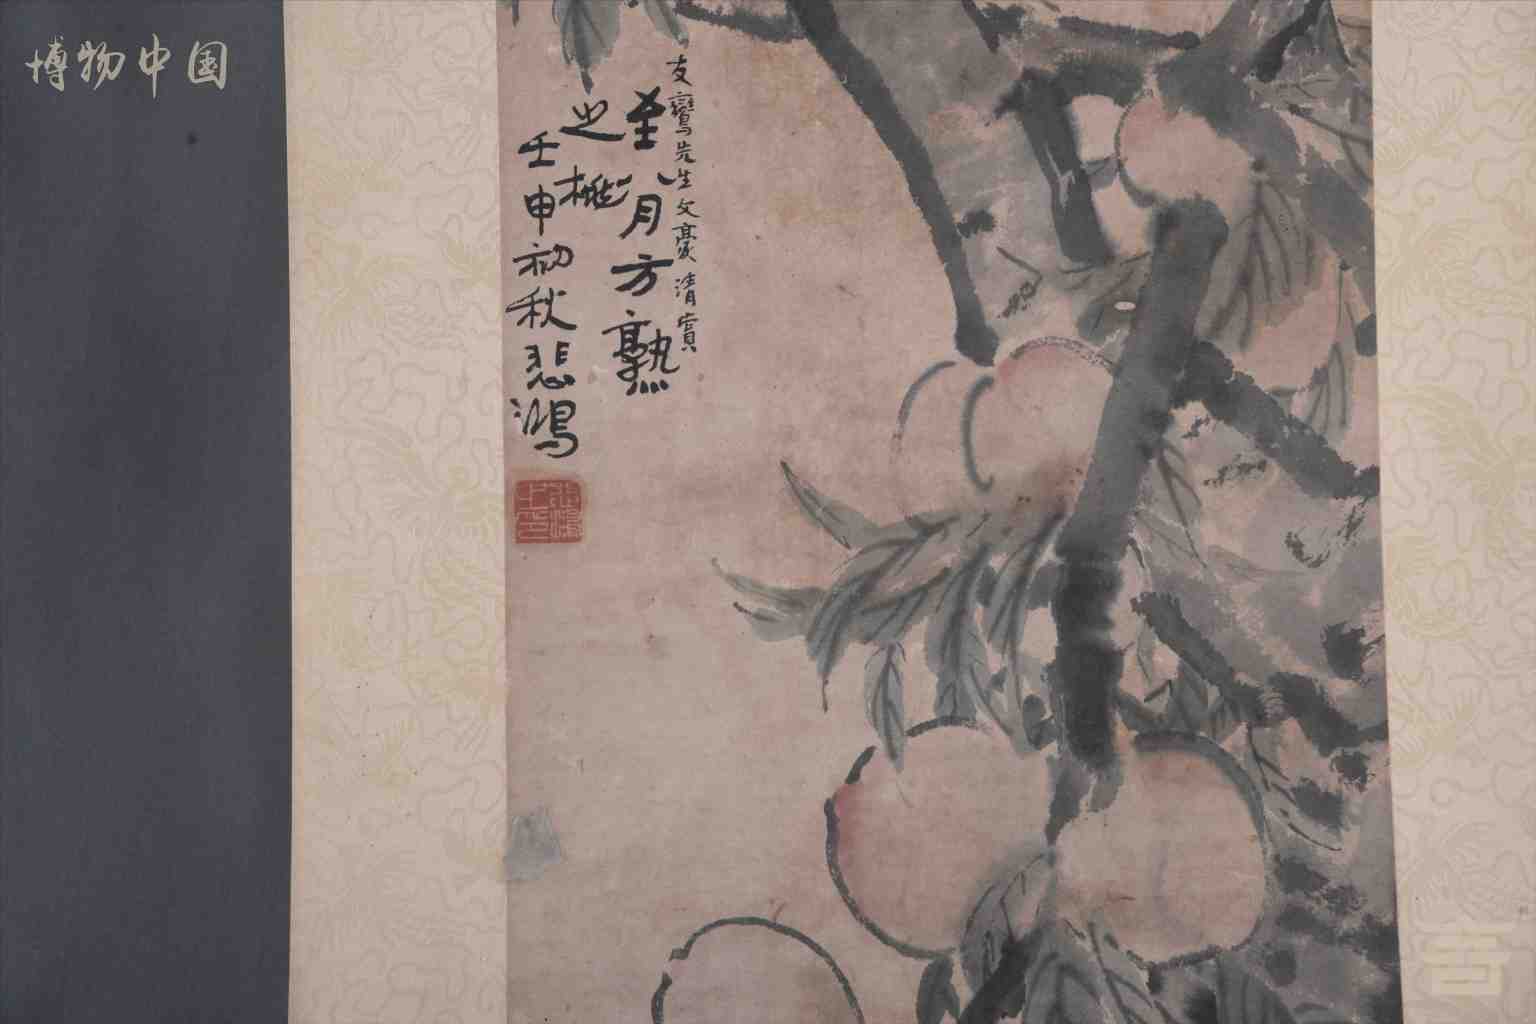 博物中国
友鸞先生文豪清賞
至八月方熟
之桃
壬申初秋悲鴻